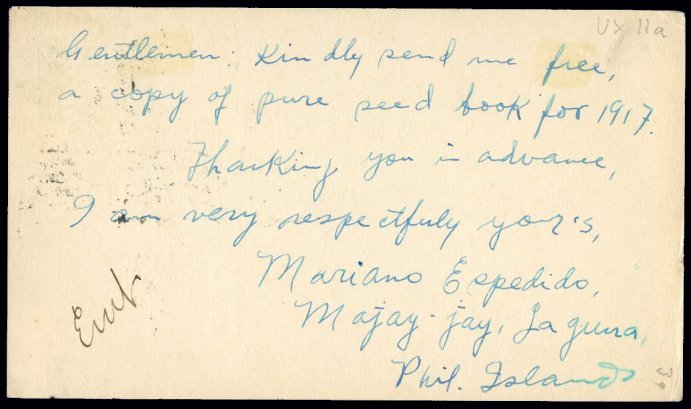 UX 11a
Gentlemen: Kindly send me free,
a copy of pure seed book for 1917.
Thanking you in advance,
I am very respectfuly your's,
Mariano Espedido,
Majay-jay, Laguna,
Phil. Islands